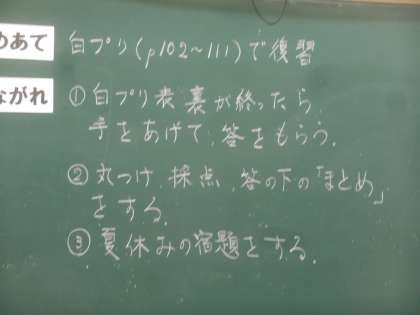 めあて 白プリ(p102~111)で復習
ながれ ①白プリ表裏が終ったら、
手をあげて、答をもらう。
②丸つけ、採点、答の下の「まとめ」
をする。
③夏休みの宿題をする。